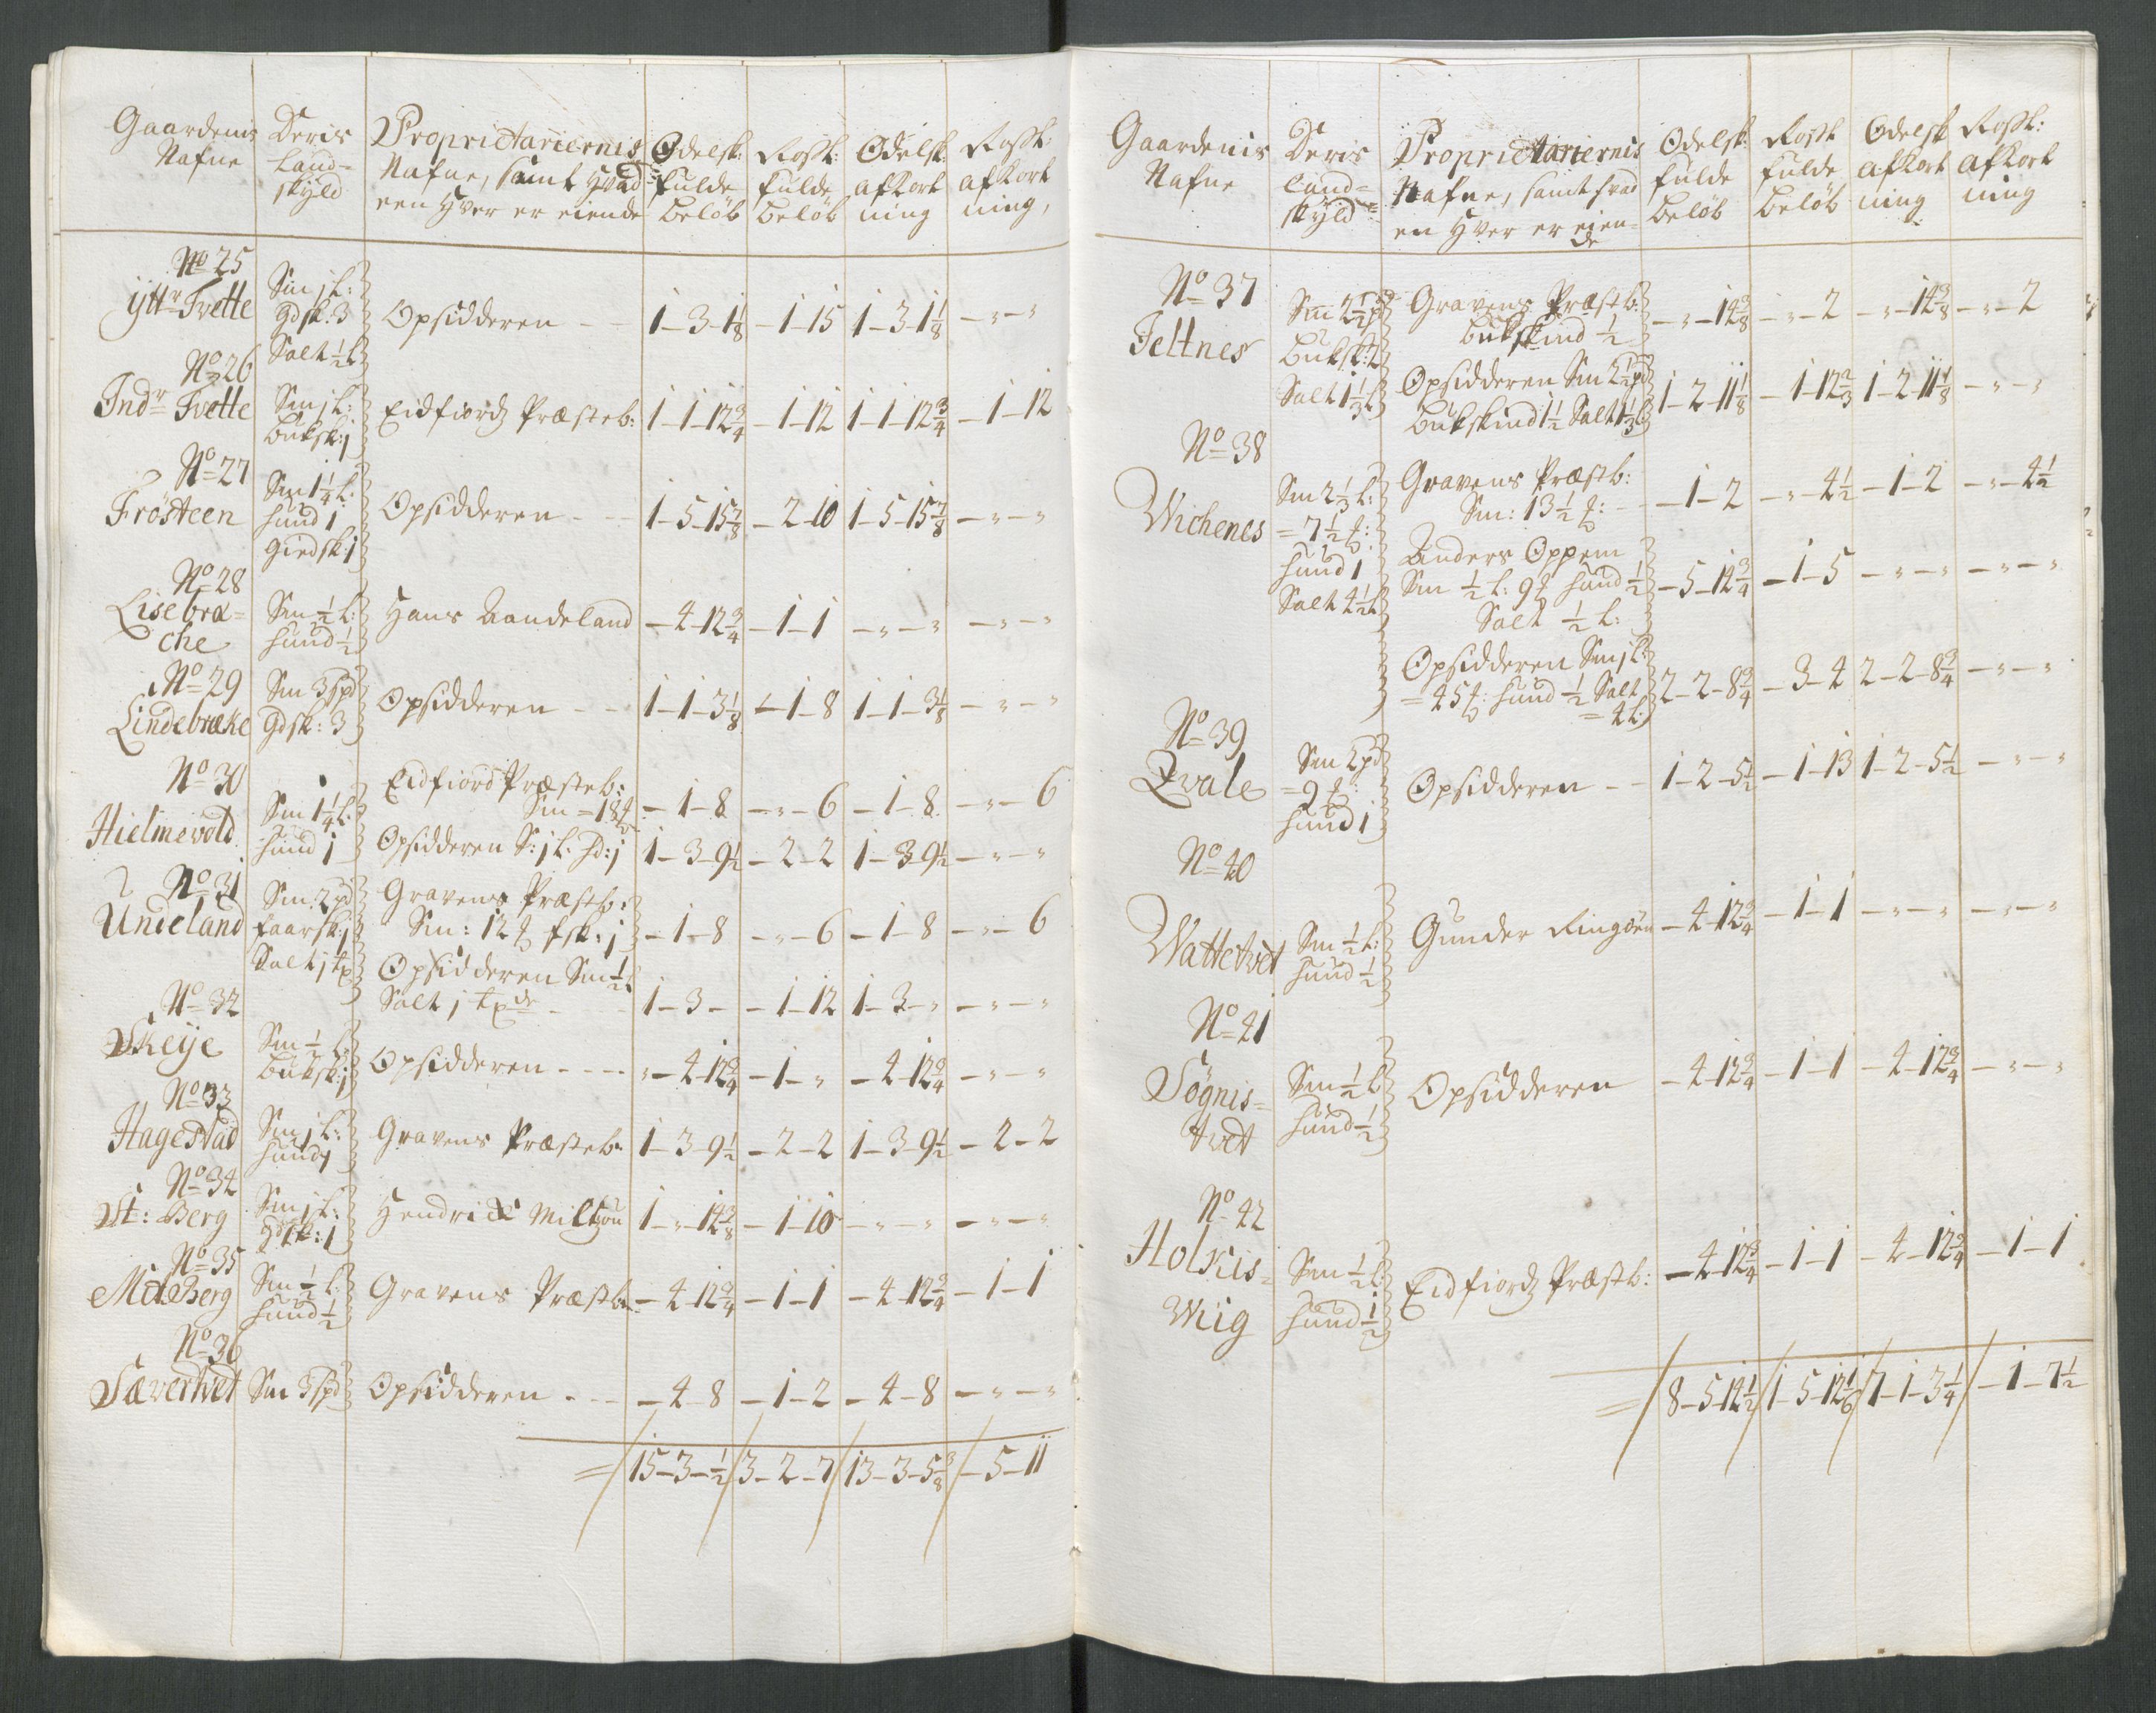 Gaardenis Nafne
Deris Land=skyld
Proprietariernis Nafne, samt hvad een hver er eiende
Odelsk: fulde Beløb
Rostt: fulde Beløb
Odelsk: afkortning
Rostt: afkortning,
No 25
ytt r Tvette
Sm j L: Gdsk: 3 Salt ½ L
Opsidderen - - 1-3-1⅛ -1-15 1-3-1⅛ -"-"
No 26
Ind r Tvette
Sm j L: Buksk: j
Eidfiord Præsteb: 1-1-12¾ -1-12 1-1-12¾ -1-12
No 27
Trösteen
Sm 1¼ L: hund 1 Giedsk: 1
Opsidderen - - 1-5-15⅞ -2-10 1-5-15⅞ -"-"
No 28
Lisebræ=che
Sm ½ L: hund ½
Hans Aandeland -4-12¾ -1-1 -"-" -"-"
No 29
Lindebræke
Sm 3 spd Gdsk: 3
Opsidderen - - 1-1-3⅛ -1-8 1-1-3⅛ -"-"
No 30
Hielmevold
Sm 1¼ L: hund j
Eidfiord Præsteb:
Sm = 18 -1-8 -"-6 -1-8 -"-6
Opsidderen S: j L. hd: j 1-3-9½ -2-2 1-3-9½ -"-"
No 31
Undeland
Sm 2 pd faarsk: j Salt j tp
Gravens Præsteb:
Sm: 12 fsk: j -1-8 -"-6 -1-8 -"-6
Opsidderen Sm ½
Salt j tpde - 1-3- -1-12 1-3-" -"-"
No 32
Skeije
Sm ½ L: Buksk: j
Opsidderen - - - - "-4-12¾ -1-" -4-12¾ -"-"
No 33
Hagestad
Sm j L: hund j
Gravens Præsteb: 1-3-9½ -2-2 1-3-9½ -2-2
No 34
St: Berg
Sm j L: Gdsk: 1
Hendrich Miltzou 1-"-14⅜ -1-10 -"-" -"-"
No 35
Mdt Berg
Sm ½ L: hund ½
Gravens Præstb: -4-12¾ -1-1 -4-12¾ -1-1
No 36
Sævertvet
Sm 3 spd
Opsidderen - - - -4-8 -1-2 -4-8 -"-"
= / 15-3-½ / 3-2-7 / 13-3-5⅜ / -5-11
Gaardenis Nafne
Deris Land=skyld=
Proprietariernis Nafne, samt hvad en hver er eien=de
Odelsk: fulde Beløb
Rostt fulde Beløb
Odelsk afkortning
Rostt: afkortning
No 37
Teltnes
Sm 2½ Buksk: 2 Salt 1⅓ L
Gravens Præstb:
Bukskind ½ -"-14⅜ -"-2 -"-14⅜ -"-2
Opsidderen Sm 2½ pd
Bukskind 1½ Salt 1⅓ 1-2-11⅛ -1-12⅔ 1-2-11⅛ -"-"
No 38
Wichenes
Sm 2⅓ L: = 7½ : hund 1 Salt 4½ L
Gravens Præstb:
Sm: 13½ : -1-2 -"-4½ -1-2 -"-4½
Anders Oppem
Sm ½ L: 9 hund ½ -5-14¾ -1-5 -"-" -"-"
Salt ½ L:
Opsidderen Sm j L:
= 45 : hund ½ Salt 2-2-8¾ -3-4 2-2-8¾ -"-"
= 4 L:
No 39
Qvale
Sm 2 pd = 9 : hund j
Opsidderen - - 1-2-5½ -1-13 1-2-5½ -"-"
No 40
Wattetvet
Sm ½ L: hund ½
Gunder Ringöen -4-12¾ -1-1 -"-" -"-"
No 41
Sögnis=tvet
Sm ½ L hund ½
Opsidderen -4-12¾ -1-1 -4-12¾ -"-"
No 42
Holkis=Wiig
Sm ½ L: hund ½
Eidfiord Præstb: -4-12¾ -1-1 -4-12¾ -1-1
= / 8-5-12½ / 1-5-12⅙ / 7-1-3¼ / -1-7½